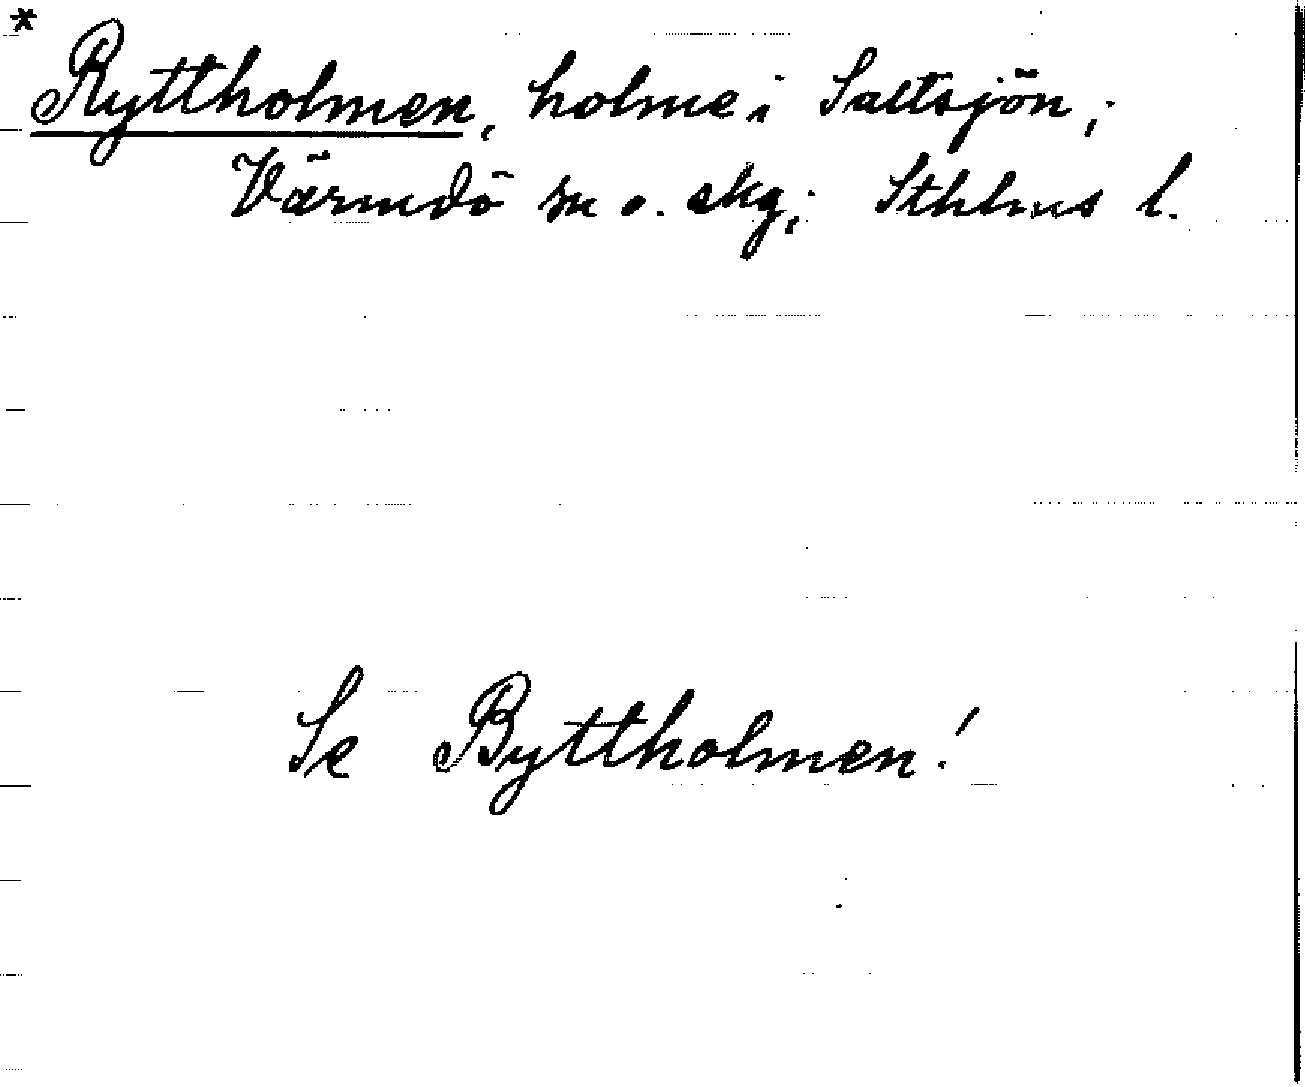 * Ryttholmen, holme i Saltsjön;
Värmdö sn o. skg; Sthlms l.
Se Byttholmen!